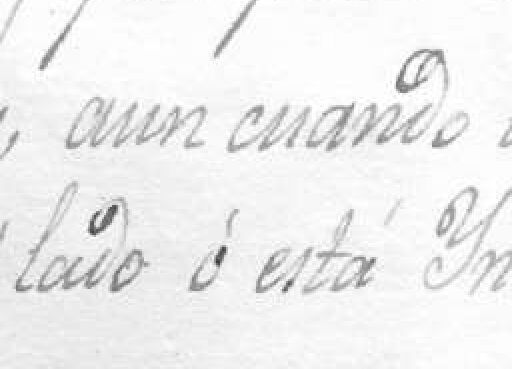 , aun cuando
lado ó está Yn